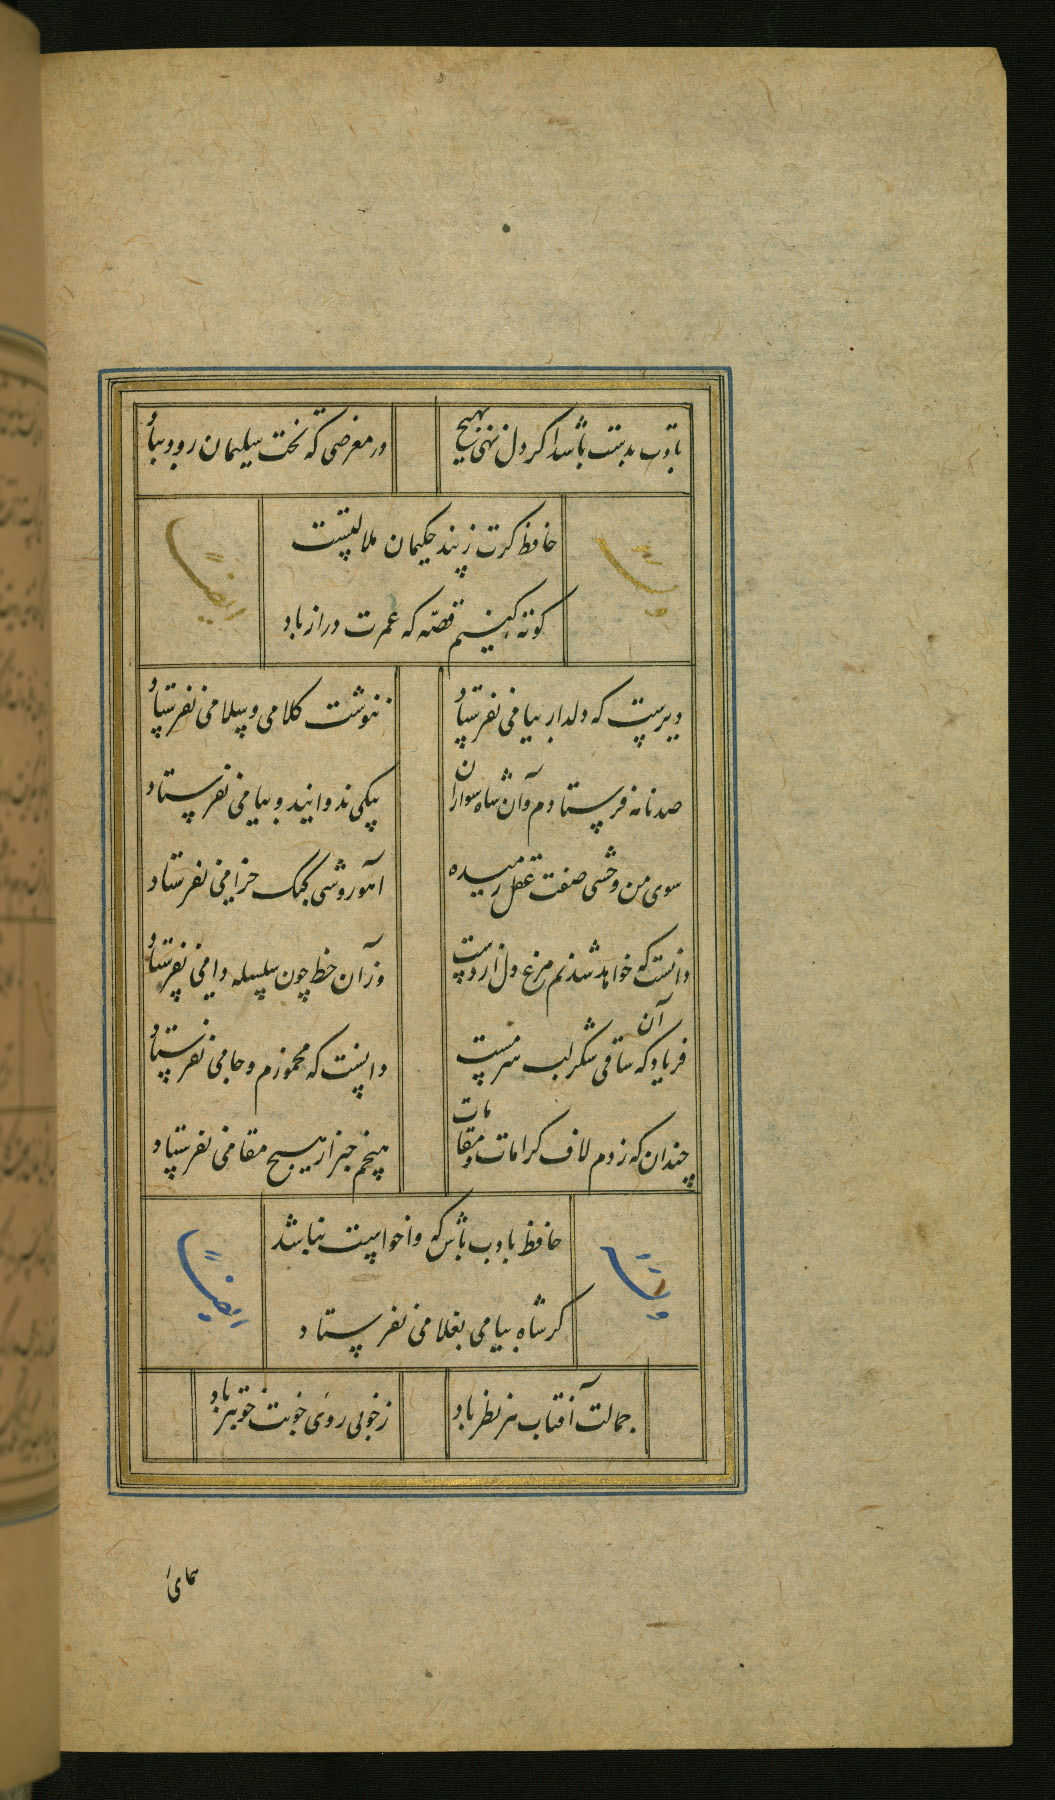 بادت بدست باشد اگر دل نهی بهیچ
در معرضی که تخت سلیمان رود بباد
حافظ گرت ز پند حکیمان ملالتست
کوته کنیم قصه که عمرت دراز باد
ایضاً
دیرست که دلدار پیامی نفرستاد
ننوشت کلامی و سلامی نفرستاد
صد نامه فرستادم و آن شاه سواران
پیکی ندوانید و پیامی نفرستاد
سوی من وحشی صفت عقل رمیده
آهو روشی کبک خرامی نفرستاد
دانست که خواهد شدنم مرغ دل از دست
وز آن خط چون سلسله دامی نفرستاد
فریاد که آن ساقی شکر لب سرمست
دانست که مخمورم و جامی نفرستاد
چندان که زدم لاف کرامات و مقامات
هیچم خبر از هیچ مقامی نفرستاد
حافظ بادب باش که واخواست نباشد
گر شاه پیامی بغلامی نفرستاد
ایضاً
جمالت آفتاب هر نظر باد
ز خوبی روی خوبت خوبتر باد
همای